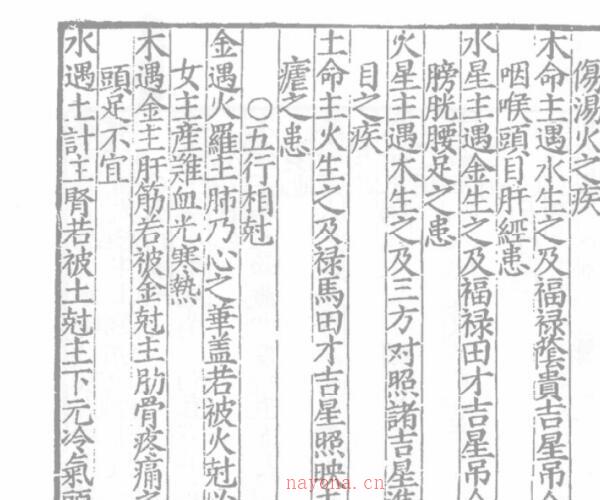 傷湯火之疾
木命主遇水生之及福禄蔭貴吉星吊
咽喉頭目肝經患
水星主遇金生之及福禄田才吉星吊
膀胱腰足之患
火星主遇木生之及三方对照諸吉星
目之疾
土命主火生之及禄馬田才吉星照映
瘧之患
○五行相尅
金遇火羅主肺乃心之華盖若被火尅
女主産難血光寒熱
木遇金主肝筋若被金尅主肋骨疼痛之
頭足不宜
水遇土計主腎若被土尅主下元冷氣頭
nayona.cn